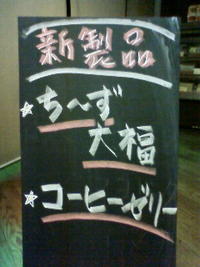 新製品
☆ち〜ず
大福
☆コーヒーゼリー